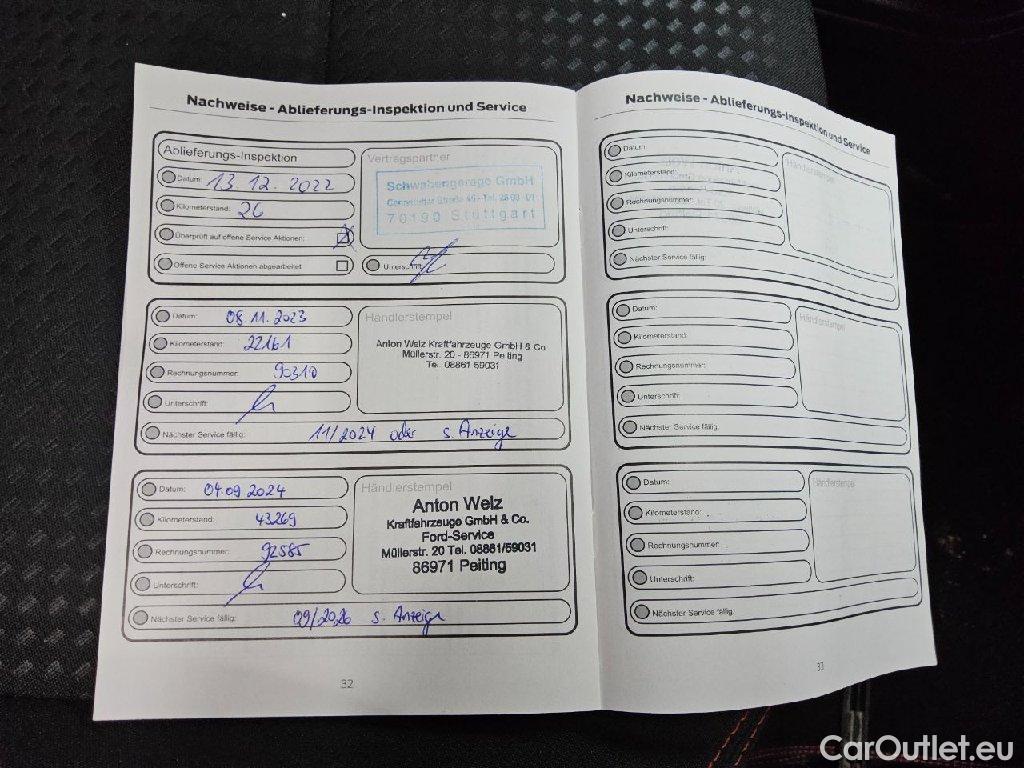 Nachweise - Ablieferungs-Inspektion und Service
Ablieferungs-Inspektion
Datum: 13.12.2022
Kilometerstand: 26
Überprüft auf offene Service Aktionen:
Offene Service Aktionen abgearbeitet
Vertragspartner
Schwabengarage GmbH
70190 Stuttgart
Unterschrift:
Datum: 08.11.2023
Kilometerstand: 22161
Rechnungsnummer: 90310
Unterschrift:
Nächster Service fällig: 11/2024 oder s. Anzeige
Händlerstempel
Anton Welz Kraftfahrzeuge GmbH & Co.
Müllerstr. 20 - 86971 Peiting
Tel. 08861 59031
Datum: 04.09.2024
Kilometerstand: 43269
Rechnungsnummer: 92585
Unterschrift:
Nächster Service fällig: 09/2026 s. Anzeige
Händlerstempel
Anton Welz
Kraftfahrzeuge GmbH & Co.
Ford-Service
Müllerstr. 20 Tel. 08861/59031
86971 Peiting
32
Nachweise - Ablieferungs-Inspektion und Service
Datum:
Kilometerstand:
Rechnungsnummer:
Unterschrift:
Nächster Service fällig:
Händlerstempel
Datum:
Kilometerstand:
Rechnungsnummer:
Unterschrift:
Nächster Service fällig:
Händlerstempel
Datum:
Kilometerstand:
Rechnungsnummer:
Unterschrift:
Nächster Service fällig:
Händlerstempel
33
CarOutlet.eu